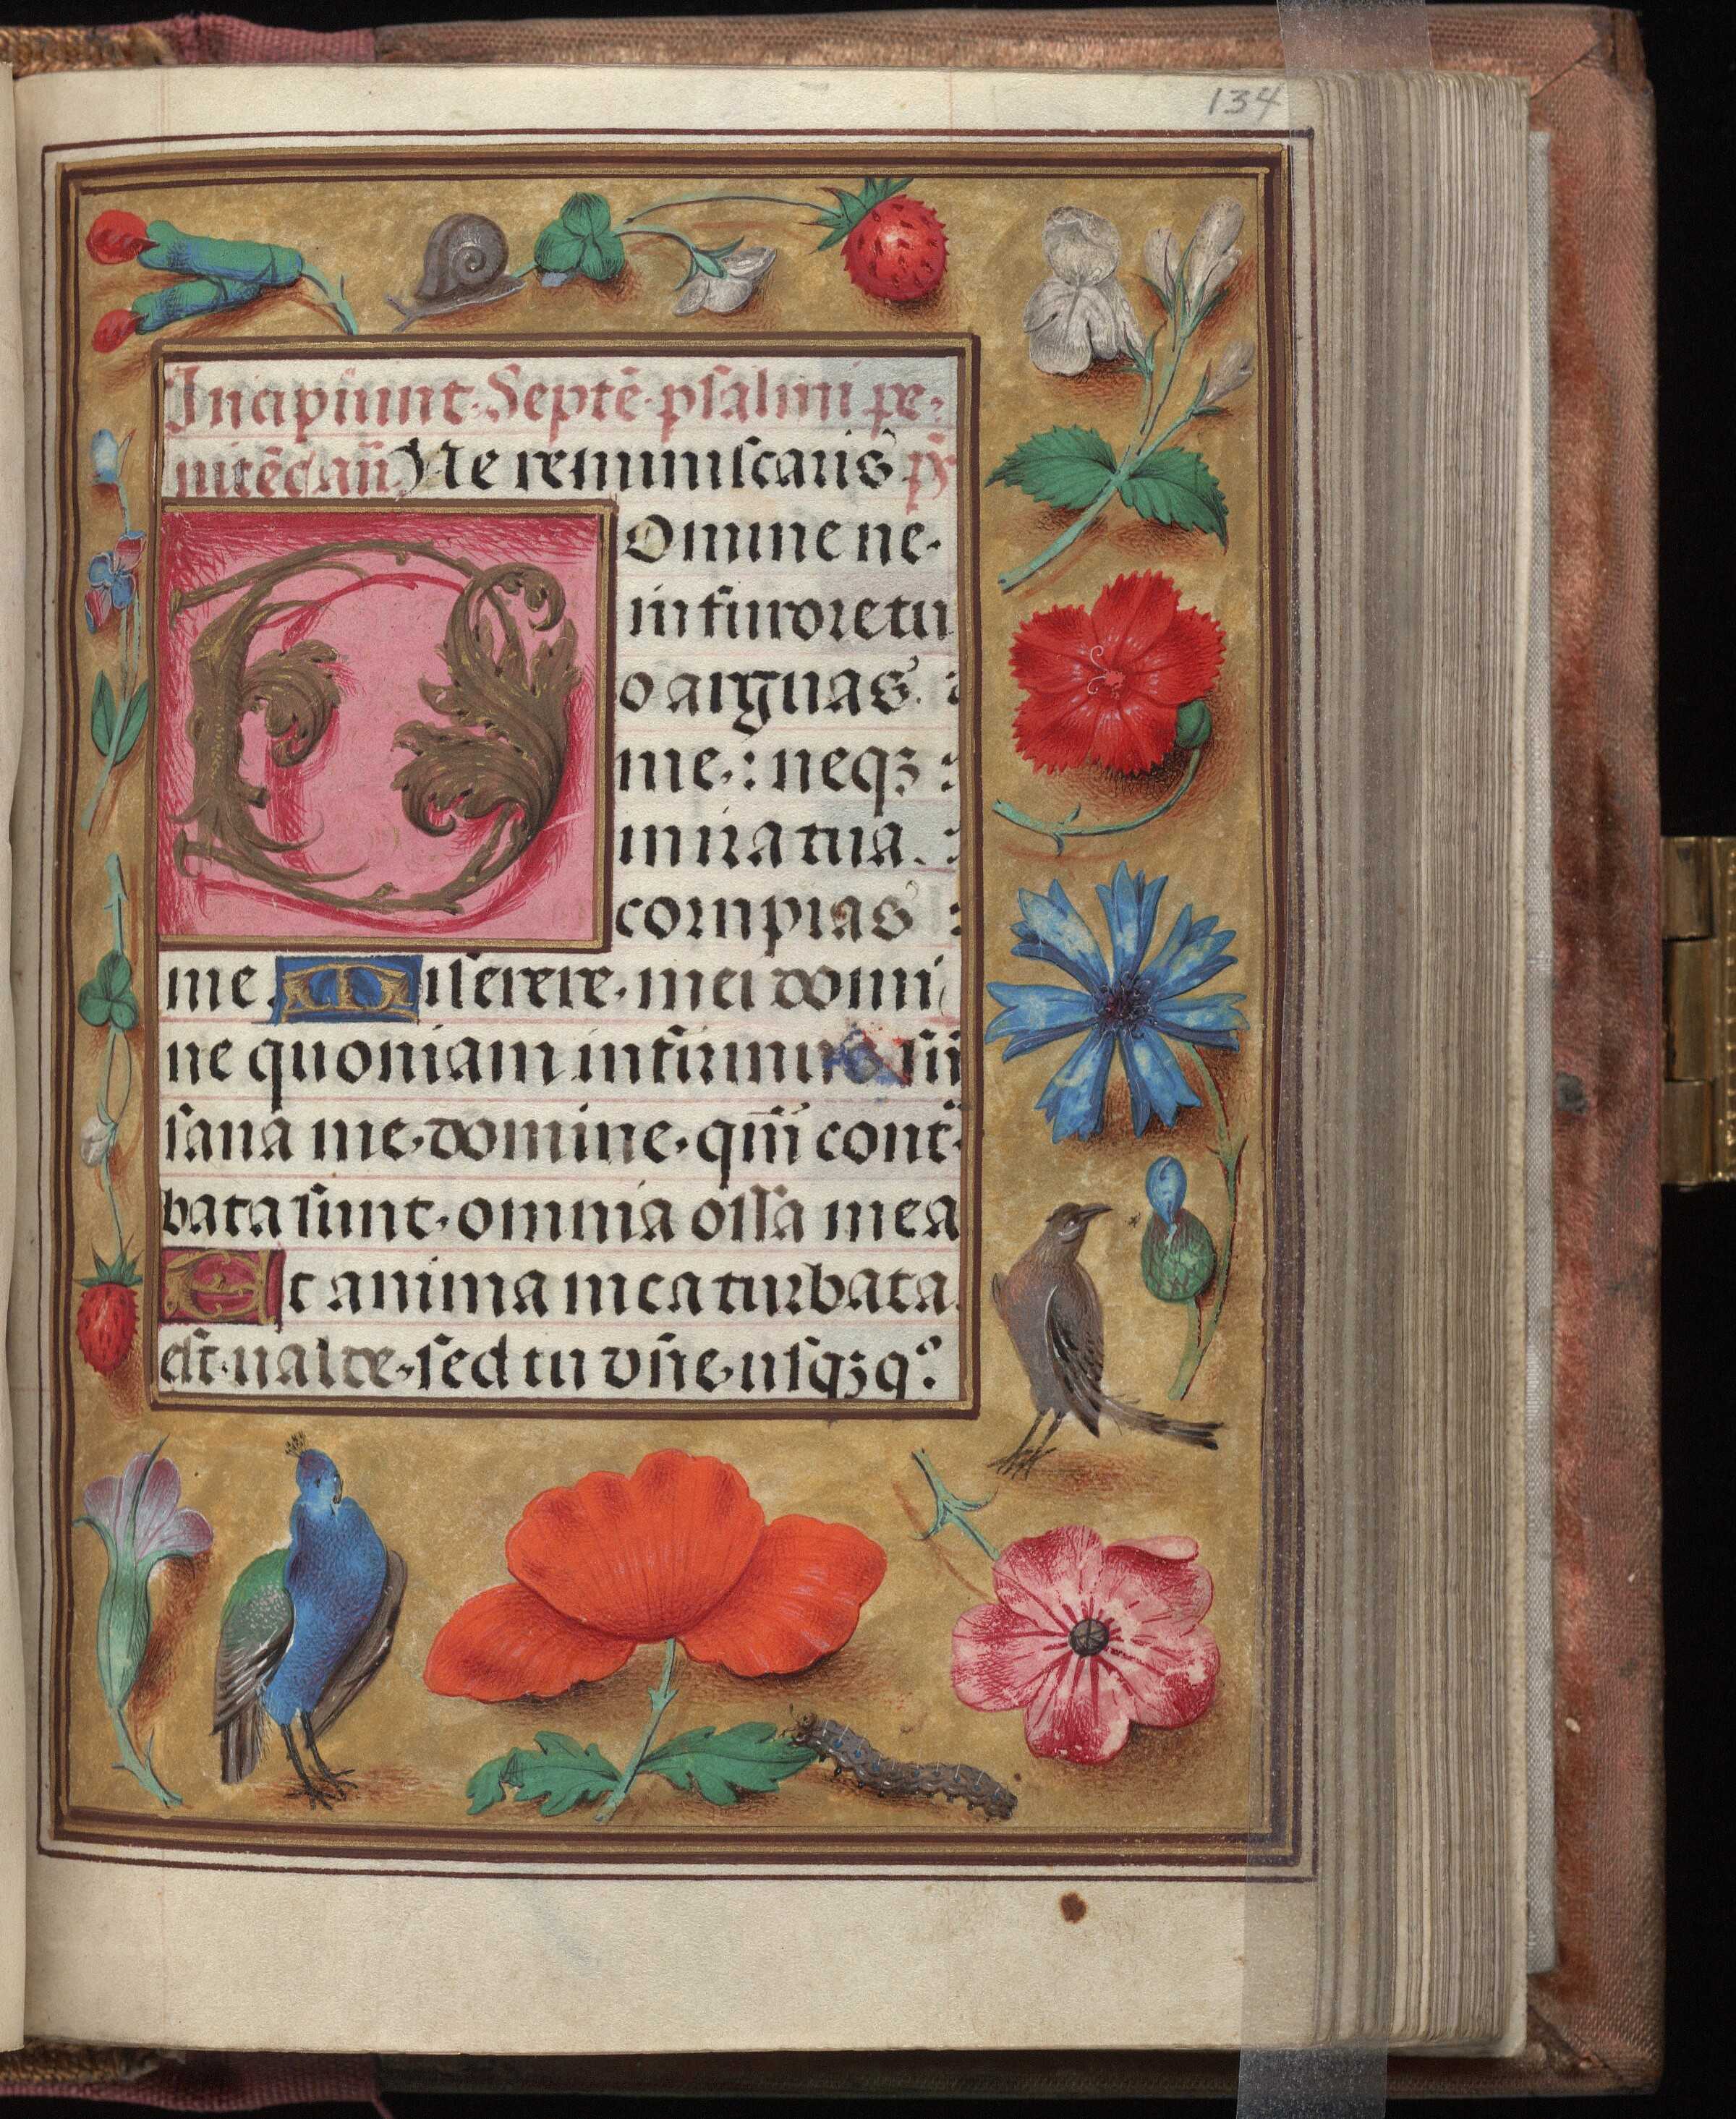 134
Incipiunt. Septē. psalmi pe-
nitēc̄. an̄. Ne reminiscaris p̄s
Domine ne.
in furore tu
o arguas.
me. : neqꝫ :
in ira tua. :
corripias :
me. Miserere. mei domi
ne quoniam infirmus sū
sana me. domine. qm̄ cont̄
bata sunt. omnia ossa mea
Et anima mea turbata.
est. ualde. sed tu dn̄e. usqꝫqº.